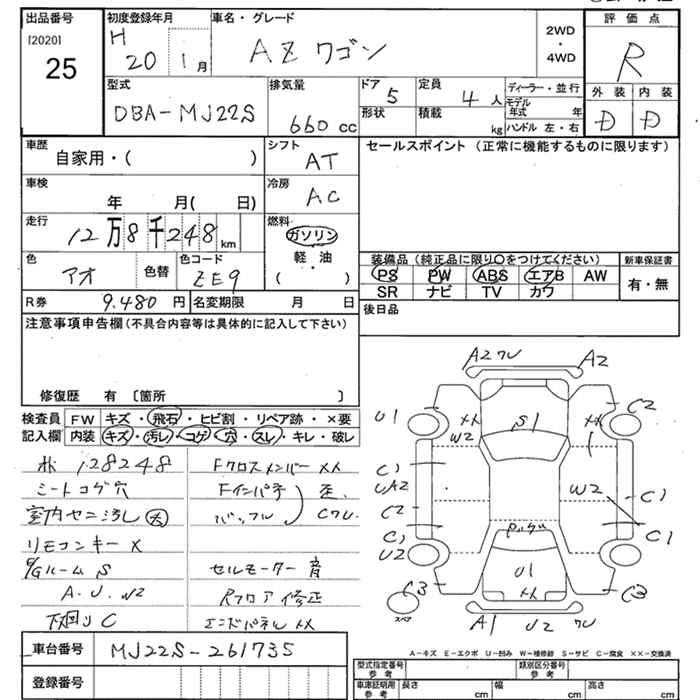 出品番号 初度登録年月 車名・グレード 評価点
[2020] H 2WD
25 20 1月 AZワゴン ・ R
4WD
外装 内装
D D
型式 排気量 ドア 定員 ディーラー・並行
DBA-MJ22S 660cc 5 4人 モデル年式 年
形状 積載 kg ハンドル 左・右
車歴 シフト セールスポイント (正常に機能するものに限ります)
自家用・( ) AT
車検 冷房
年 月( 日) AC
走行 燃料
12万8千248km ガソリン
軽油
・
( )
色 色替 色コード
アオ ZE9
装備品 (純正品に限り〇をつけてください) 新車保証書
PS PW ABS エアB AW 有・無
SR ナビ TV カワ
R券 9.480円 名変期限 月 日
後日品
注意事項申告欄 (不具合内容等は具体的に記入して下さい)
修復歴 有 〔箇所 〕
検査員 FW キズ・飛石・ヒビ割・リペア跡・×要
記入欄 内装 キズ・汚し・コゲ・穴・スレ・キレ・破レ
128248 Fクロスメンバー XX
シートコゲ穴 Fインパネ 歪.
室内セニ汚し 大 バッフル Cワレ.
リモコンキー X
E/Gルーム S セルモーター 音
A.U.W2 Rフロア 修正
下回り C エンドパネル XX
車台番号 MJ22S-261735
登録番号
A2ワレ A2
U1 XX S1 XX C2
W2
C1
UA2 W2 C1
C2
C1 C1
U2 バックダ
U1
C3 XX C3
スペア
A1 U2 ワレ
A-キズ E-エクボ U-凹み W-補修跡 S-サビ C-腐食 ××-交換済
型式指定番号 参考 類別区分番号 参考
車庫証明用 参考 長さ cm 幅 cm 高さ cm